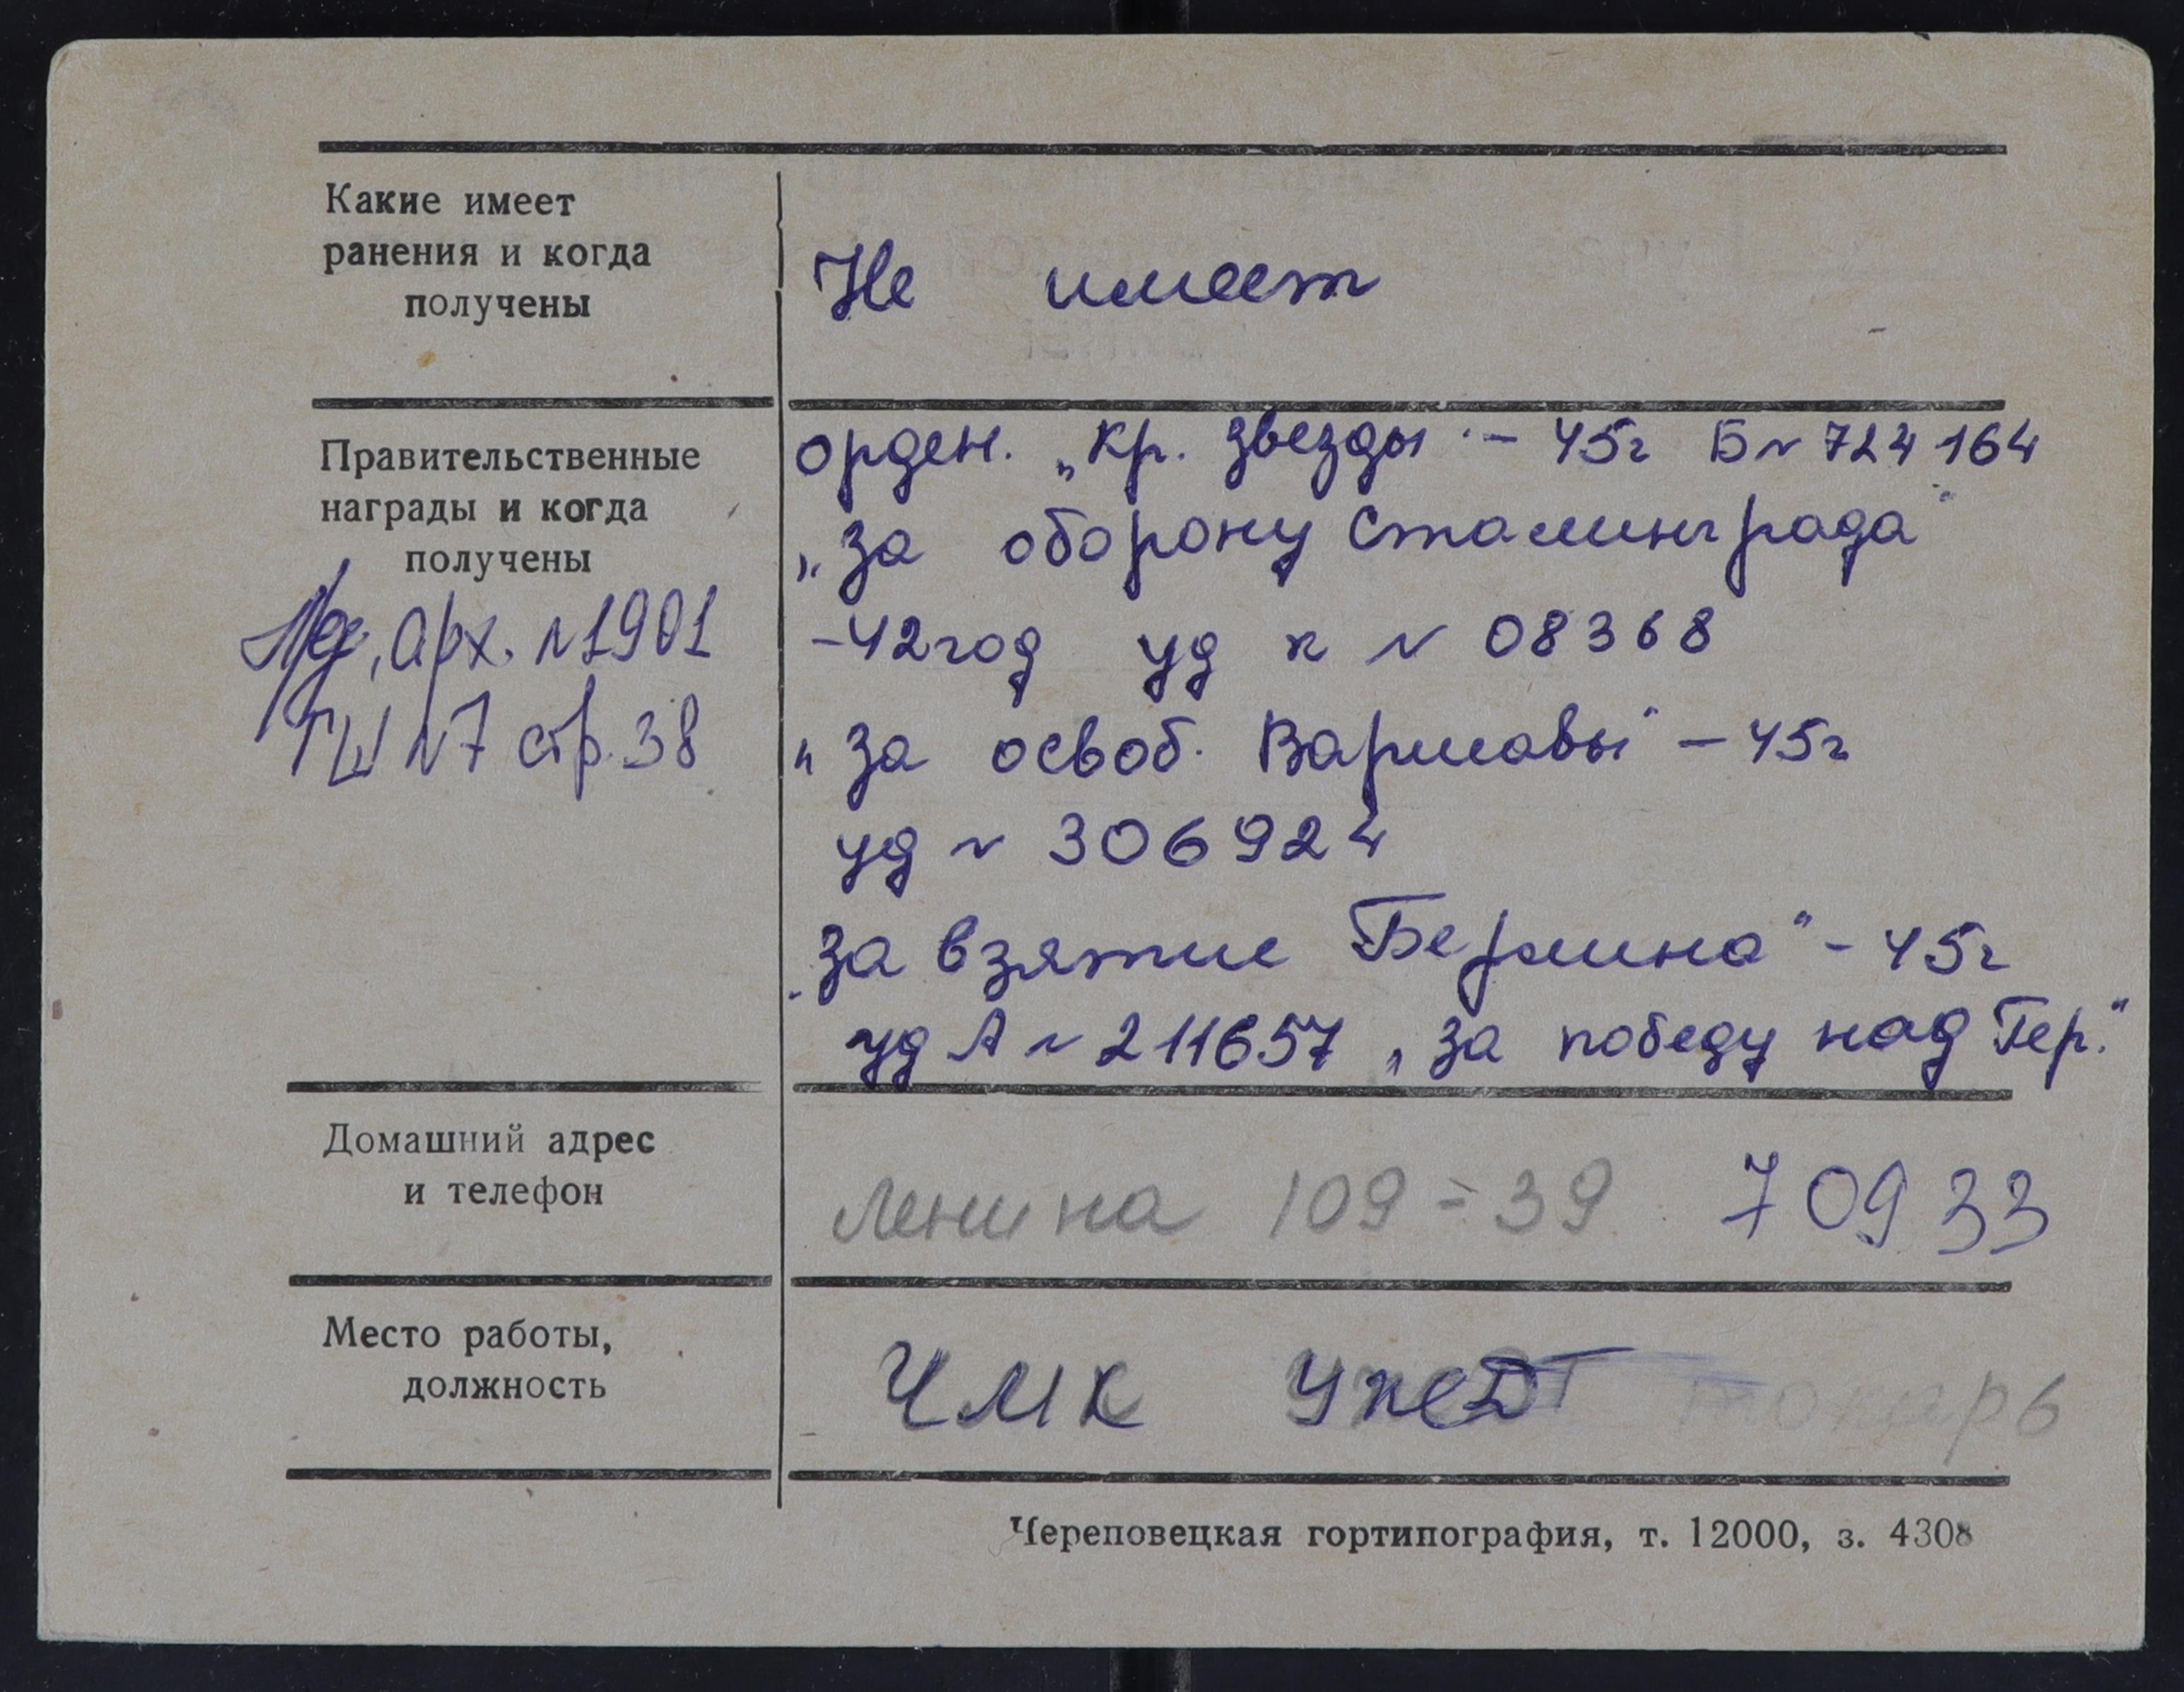 Какие имеет
ранения и когда
получены
Не имеет
Правительственные
награды и когда
получены
орден. „Кр. звезды" - 45г Б№ 724164
„за оборону Сталинграда"
-42год уд к № 08368
„за освоб. Варшавы" - 45г
уд № 306924
„за взятие Берлина" - 45г
уд А № 211657 „за победу над Гер."
арх. №1901
№7 стр. 38
Домашний адрес
и телефон
Ленина 109 = 39 70933
Место работы,
должность
ЧМК УЖДТ токарь
Череповецкая гортипография, т. 12000, з. 4308